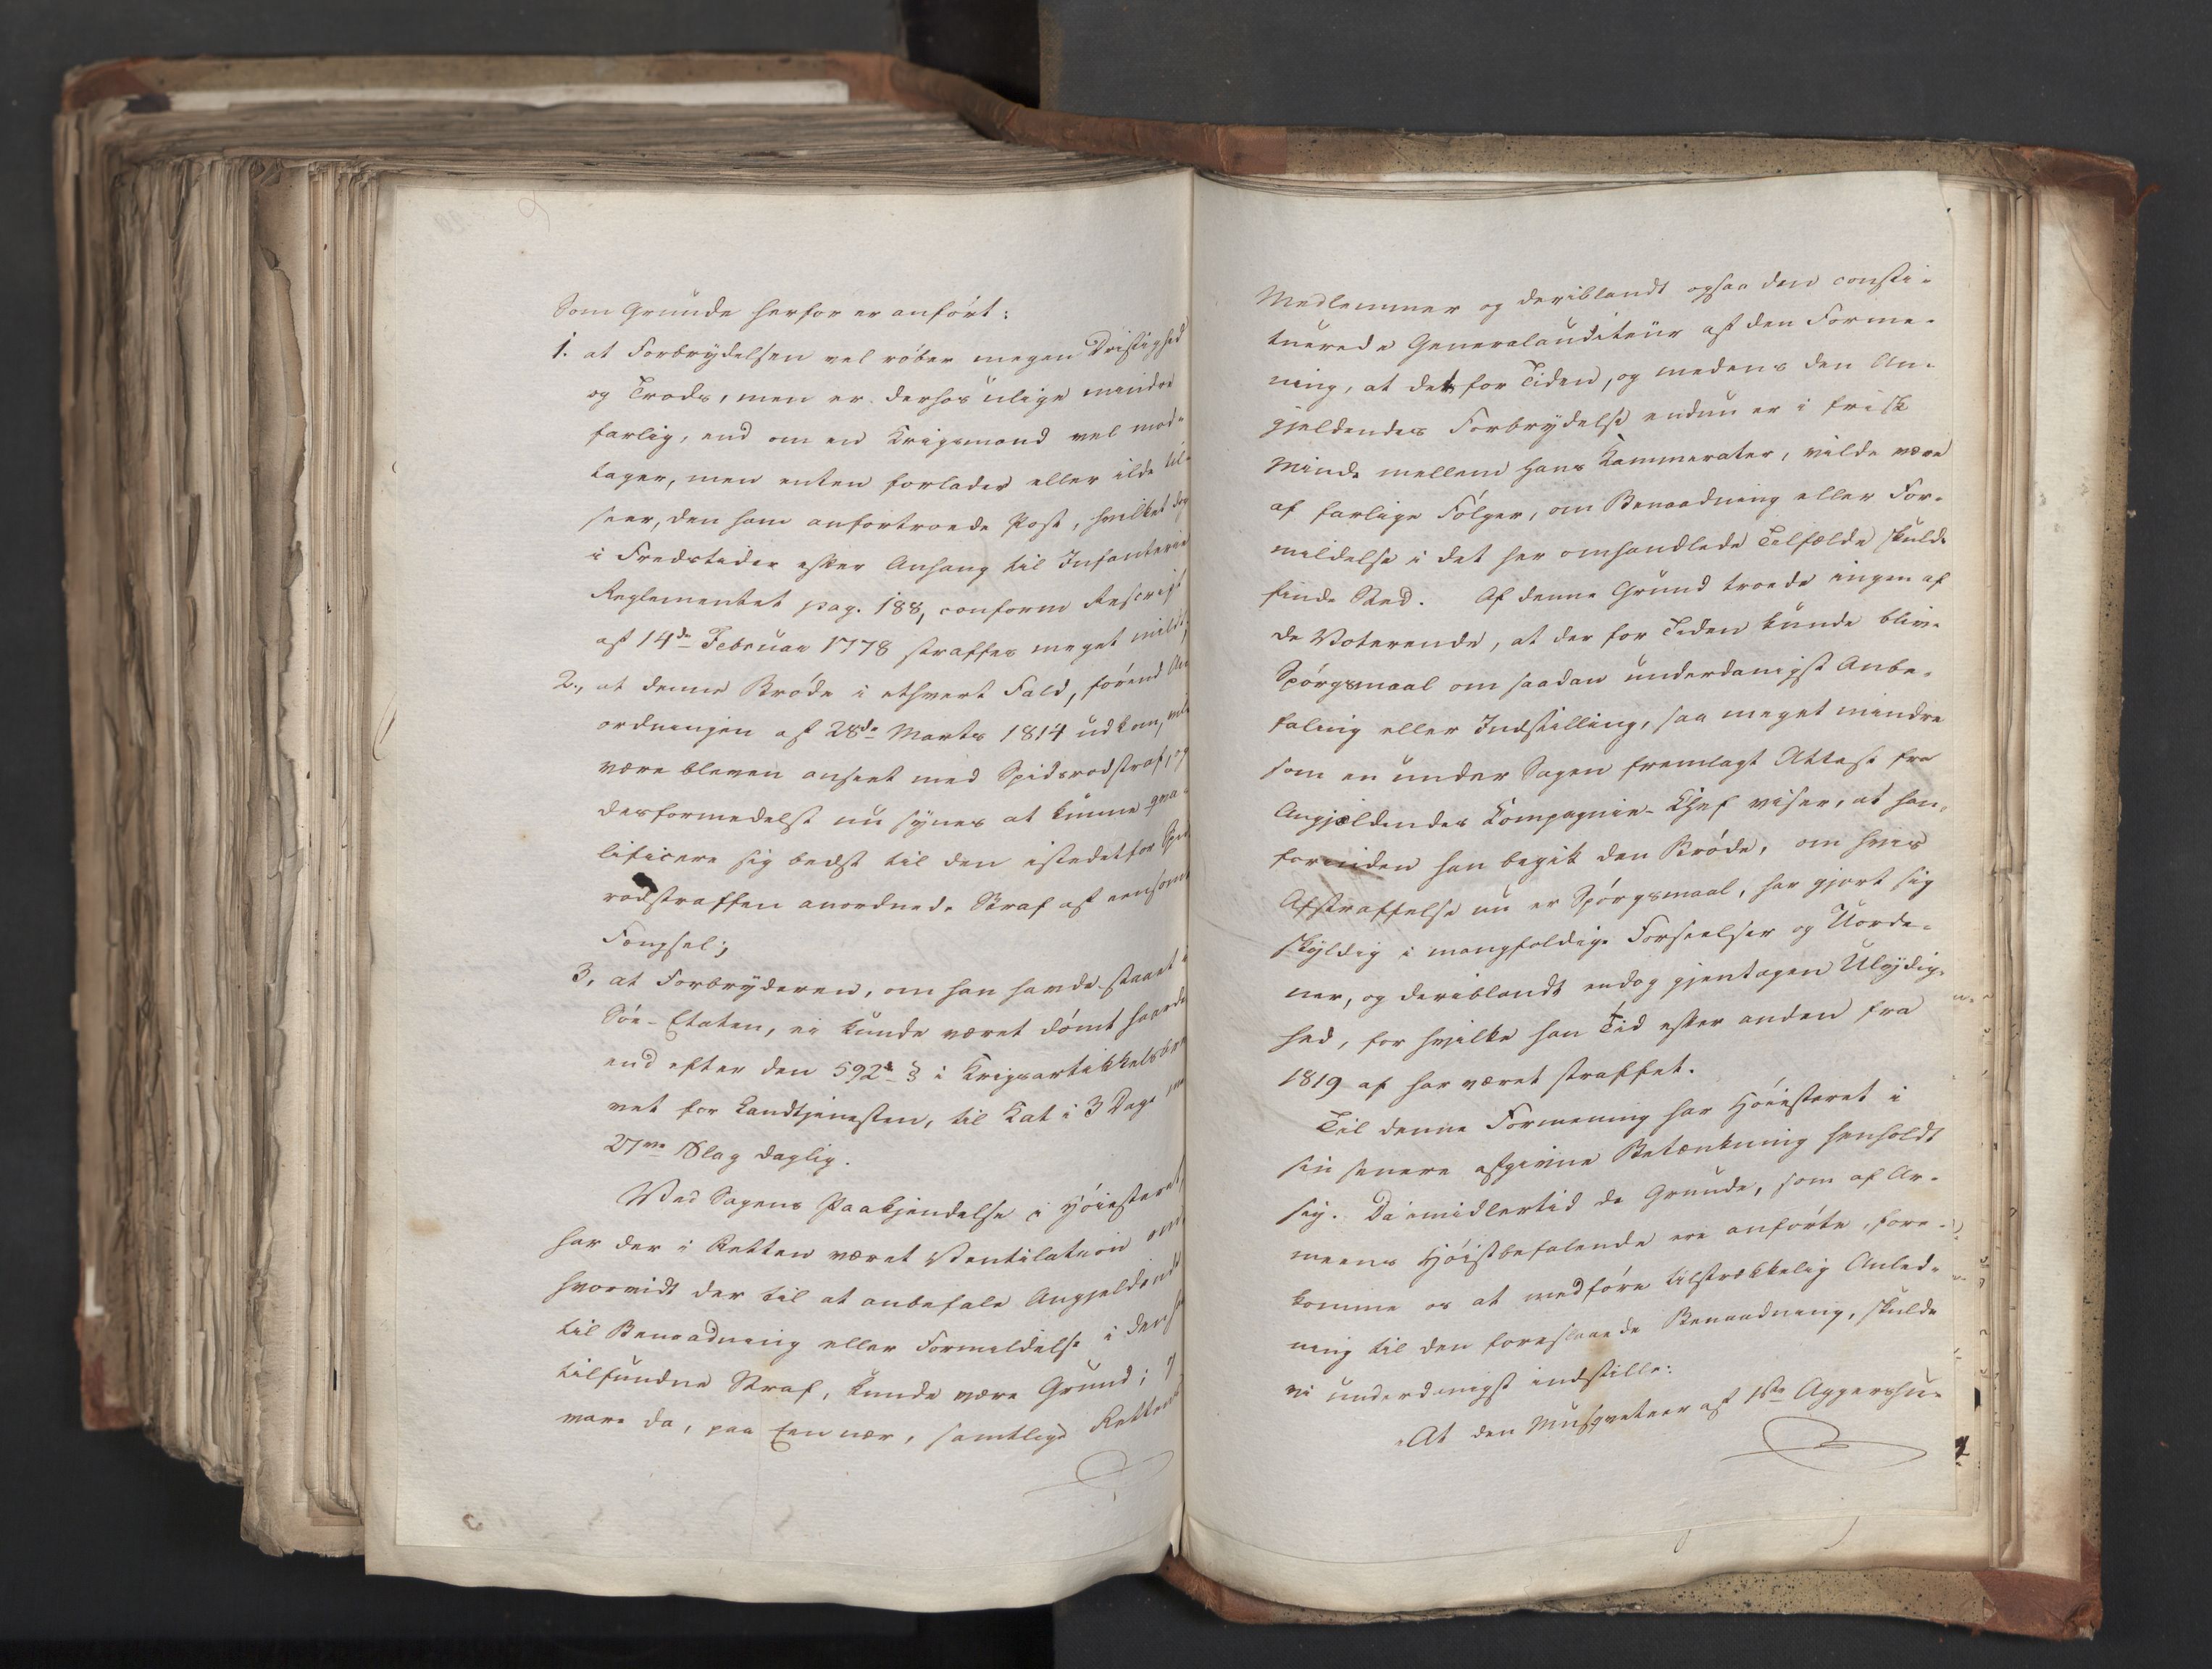 Som Grunde herfor er anført:
1. at Forbrydelsen vel røber megen Dristighed
og Trods, men er derhos ulige mindre
farlig, end om en Krigsmand vel mod-
tager, men enten forlader eller ilde til-
seer, den ham anfortroede Post, hvilket dog
i Fredstider efter Anhang til Infanterie
Reglementet pag. 188, conform Rescript
af 14de Februar 1778 straffes meget mildt;
2., at denne Brøde i ethvert Fald, førend An-
ordningen af 28de Marts 1814 udkom, vilde
være bleven anseet med Spidsrodstraf, og
desformedelst nu synes at kunne qva-
lificere sig bedst til den istedetfor Spids-
rodstraffen anordnede Straf af eensomt
Fængsel;
3, at Forbryderen, om han havde staaet i
Søe-Etaten, ei kunde været dømt haardere
end efter den 592de § i Krigsartikkelsbre-
vet for Landtjenesten, til Kat i 3 Dage med
27ve Slag daglig.
Ved Sagens Paakjendelse i Høiesteret,
har der i Retten været Ventilation om,
hvorvidt der til at anbefale Angjeldende
til Benaadning eller Formildelse i den ham
tilfundne Straf, kunde være Grund; og
vare da, paa Een nær, samtlige Rettens
Medlemmer og deriblandt ogsaa den consti-
tuerede Generalauditeur af den Forme-
ning, at det for Tiden, og medens den An-
gjeldendes Forbrydelse endnu er i frisk
Minde mellem hans Kammerater, vilde være
af farlige Følger, om Benaadning eller For-
mildelse i det her omhandlede Tilfælde skulde
finde Sted. Af denne Grund troede ingen af
de Voterende, at der for Tiden kunde blive
Spørgsmaal om saadan underdanigst Anbe-
faling eller Indstilling, saa meget mindre
som en under Sagen fremlagt Attest fra
Angjældendes Compagnie-Chef viser, at han,
forinden han begik den Brøde, om hvis
Afstraffelse nu er Spørgsmaal, har gjort sig
skyldig i mangfoldige Forseelser og Uorde-
ner, og deriblandt endog gjentagen Ulydig-
hed, for hvilke han Tid efter anden fra
1819 af har været straffet.
Til denne Formening har Høiesteret i
sin senere afgivne Betænkning henholdt
sig. Da imidlertid de Grunde, som af Ar-
meens Høistbefalende ere anførte, fore-
komme os at medføre tilstrækkelig Anled-
ning til den foreslaaede Benaadning, skulde
vi underdanigst indstille:
"At den Musqveteer af 1ste Aggershu-